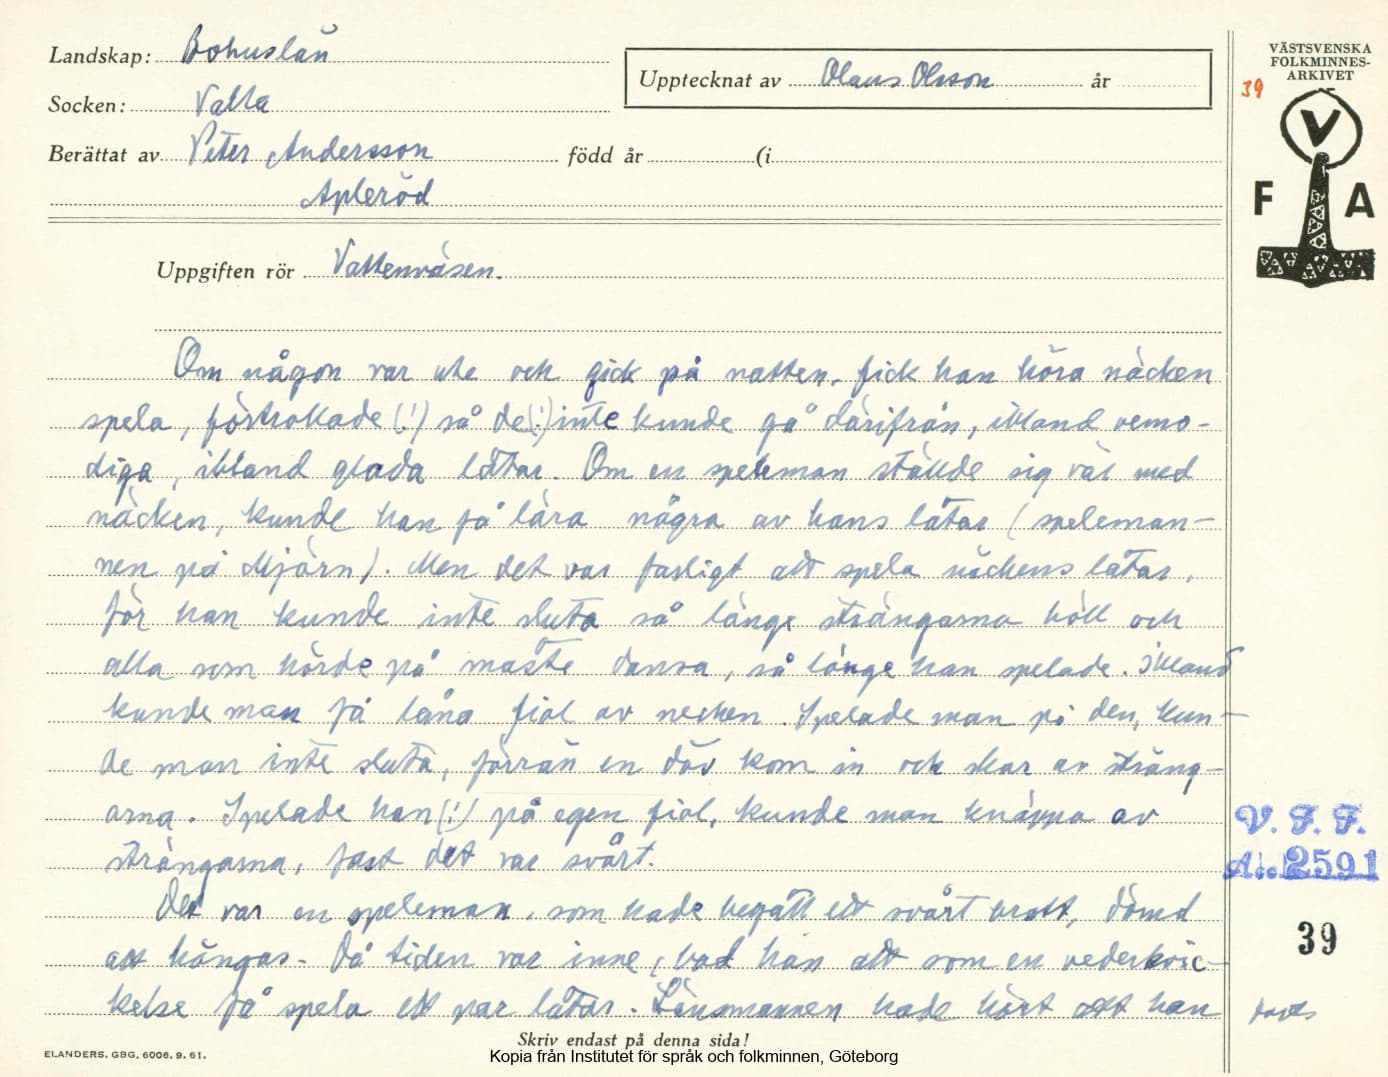 Landskap: Bohuslän
Upptecknat av Olaus Olsson år
VÄSTSVENSKA
FOLKMINNES-
ARKIVET
39
Socken: Valla
Berättat av Peter Andersson född år (i
Apleröd
V
F A
Uppgiften rör Vattenväsen.
Om någon var ute och gick på natten, fick han höra näcken
spela, förtrollade (!) så de (!) inte kunde gå därifrån, ibland vemo-
diga, ibland glada låtar. Om en speleman ställde sig väl med
näcken, kunde han få lära några av hans låtar (speleman-
nen på Mjörn). Men det var farligt att spela näckens låtar,
för han kunde inte sluta så länge strängarna höll och
alla som hörde på måste dansa, så länge han spelade. Ibland
kunde man få låna fiol av necken. Spelade man på den, kun-
de man inte sluta, förrän en döv kom in och skar av sträng-
arna. Spelade han (!) på egen fiol, kunde man knäppa av
strängarna, fast det var svårt.
Det var en speleman, som hade begått ett svårt brott, dömd
att hängas. Då tiden var inne, bad han att som en vederkvic-
kelse få spela ett par låtar. Länsmannen hade hört att han
V. F. F.
Acc. 2591
39
forts
Skriv endast på denna sida!
ELANDERS, GBG, 6006. 9. 61.
Kopia från Institutet för språk och folkminnen, Göteborg